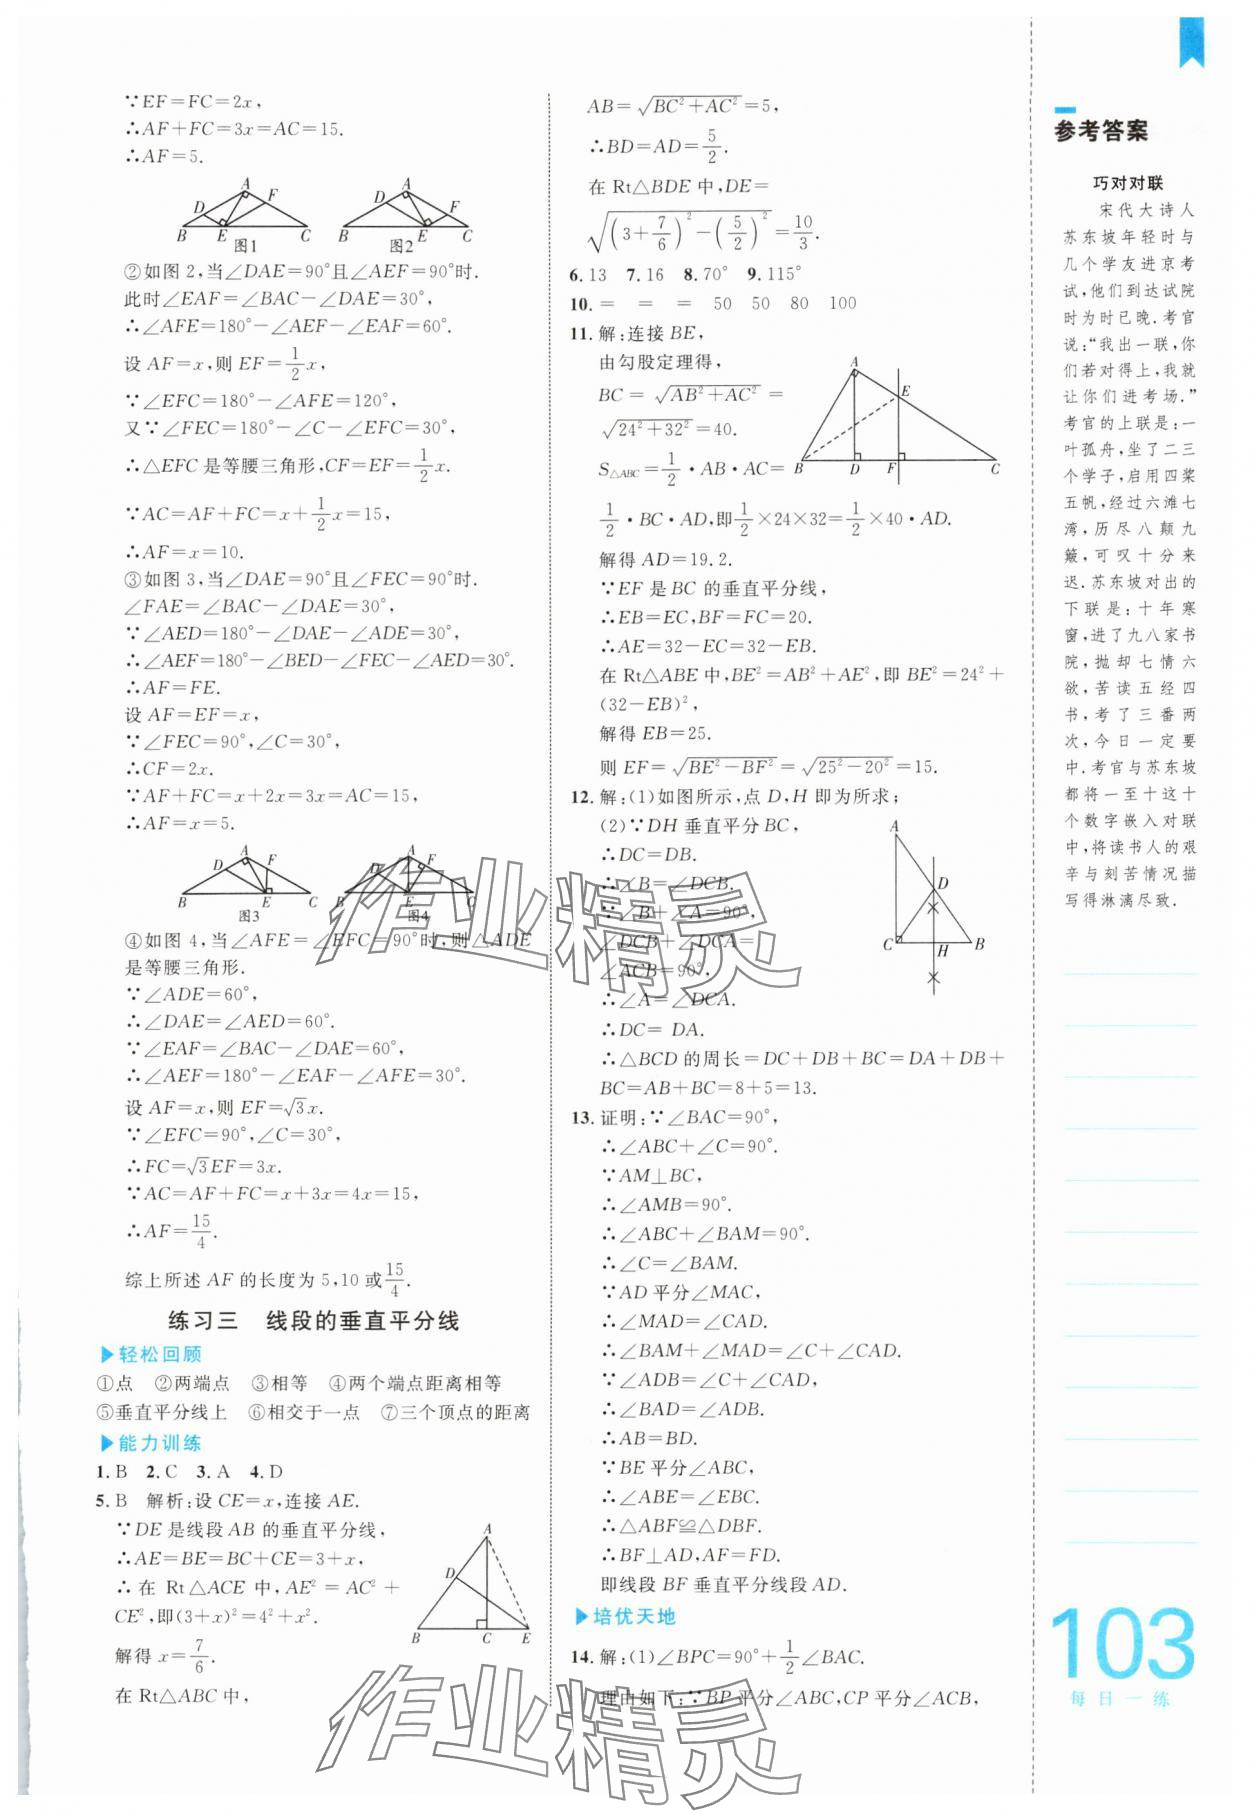 ∵EF=FC=2x,
∴AF+FC=3x=AC=15.
∴AF=5.
A D F B E C 图1
A D F B E C 图2
②如图2,当∠DAE=90°且∠AEF=90°时.
此时∠EAF=∠BAC-∠DAE=30°,
∴∠AFE=180°-∠AEF-∠EAF=60°.
设AF=x,则EF=1/2x,
∵∠EFC=180°-∠AFE=120°,
又∵∠FEC=180°-∠C-∠EFC=30°,
∴△EFC是等腰三角形,CF=EF=1/2x.
∵AC=AF+FC=x+1/2x=15,
∴AF=x=10.
③如图3,当∠DAE=90°且∠FEC=90°时.
∠FAE=∠BAC-∠DAE=30°,
∵∠AED=180°-∠DAE-∠ADE=30°,
∴∠AEF=180°-∠BED-∠FEC-∠AED=30°.
∴AF=FE.
设AF=EF=x,
∵∠FEC=90°,∠C=30°,
∴CF=2x.
∵AF+FC=x+2x=3x=AC=15,
∴AF=x=5.
A D F B E C 图3
A D F B E C 图4
④如图4,当∠AFE=∠EFC=90°时,则△ADE
是等腰三角形.
∵∠ADE=60°,
∴∠DAE=∠AED=60°.
∵∠EAF=∠BAC-∠DAE=60°,
∴∠AEF=180°-∠EAF-∠AFE=30°.
设AF=x,则EF=√3x.
∵∠EFC=90°,∠C=30°,
∴FC=√3EF=3x.
∵AC=AF+FC=x+3x=4x=15,
∴AF=15/4.
综上所述AF的长度为5,10或15/4.
练习三 线段的垂直平分线
▶轻松回顾
①点 ②两端点 ③相等 ④两个端点距离相等
⑤垂直平分线上 ⑥相交于一点 ⑦三个顶点的距离
▶能力训练
1.B 2.C 3.A 4.D
5.B 解析:设CE=x,连接AE.
∵DE是线段AB的垂直平分线,
∴AE=BE=BC+CE=3+x,
∴在Rt△ACE中,AE²=AC²+
CE²,即(3+x)²=4²+x².
解得x=7/6.
在Rt△ABC中,
A D B C E
AB=√(BC²+AC²)=5,
∴BD=AD=5/2.
在Rt△BDE中,DE=
√((3+7/6)²-(5/2)²)=10/3.
6.13 7.16 8.70° 9.115°
10.= = = 50 50 80 100
11.解:连接BE,
由勾股定理得,
BC=√(AB²+AC²)=
√(24²+32²)=40.
S△ABC=1/2·AB·AC=
1/2·BC·AD,即1/2×24×32=1/2×40·AD.
解得AD=19.2.
∵EF是BC的垂直平分线,
∴EB=EC,BF=FC=20.
∴AE=32-EC=32-EB.
在Rt△ABE中,BE²=AB²+AE²,即BE²=24²+
(32-EB)²,
解得EB=25.
则EF=√(BE²-BF²)=√(25²-20²)=15.
A E B D F C
12.解:(1)如图所示,点D,H即为所求;
(2)∵DH垂直平分BC,
∴DC=DB.
∴∠B=∠DCB.
∵∠B+∠A=90°,
∠DCB+∠DCA=
∠ACB=90°,
∴∠A=∠DCA.
∴DC=DA.
∴△BCD的周长=DC+DB+BC=DA+DB+
BC=AB+BC=8+5=13.
A D C H B
13.证明:∵∠BAC=90°,
∴∠ABC+∠C=90°.
∵AM⊥BC,
∴∠AMB=90°.
∴∠ABC+∠BAM=90°.
∴∠C=∠BAM.
∵AD平分∠MAC,
∴∠MAD=∠CAD.
∴∠BAM+∠MAD=∠C+∠CAD.
∵∠ADB=∠C+∠CAD,
∴∠BAD=∠ADB.
∴AB=BD.
∵BE平分∠ABC,
∴∠ABE=∠EBC.
∴△ABF≌△DBF.
∴BF⊥AD,AF=FD.
即线段BF垂直平分线段AD.
▶培优天地
14.解:(1)∠BPC=90°+1/2∠BAC.
理由如下:∵BP平分∠ABC,CP平分∠ACB,
参考答案
巧对对联
宋代大诗人
苏东坡年轻时与
几个学友进京考
试,他们到达试院
时为时已晚.考官
说:“我出一联,你
们若对得上,我就
让你们进考场.”
考官的上联是:一
叶孤舟,坐了二三
个学子,启用四桨
五帆,经过六滩七
湾,历尽八颠九
簸,可叹十分来
迟.苏东坡对出的
下联是:十年寒
窗,进了九八家书
院,抛却七情六
欲,苦读五经四
书,考了三番两
次,今日一定要
中.考官与苏东坡
都将一至十这十
个数字嵌入对联
中,将读书人的艰
辛与刻苦情况描
写得淋漓尽致.
103
每日一练
作业精灵
作业精灵